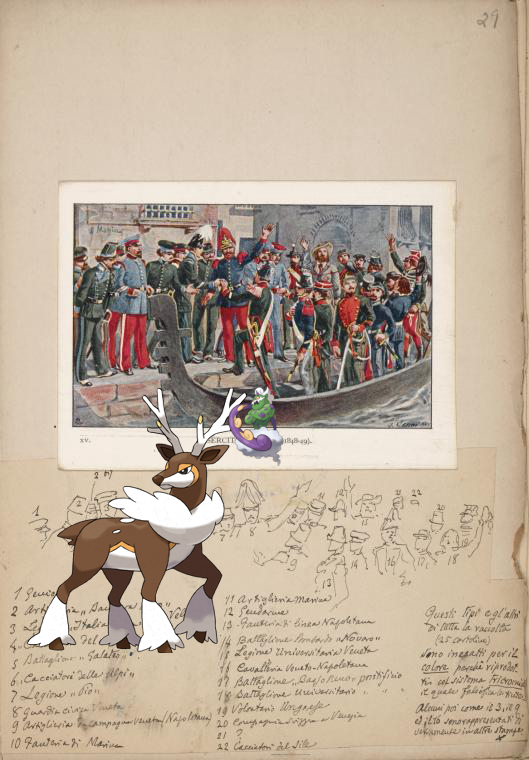 29
Marina
XV.
ERCIT
(1848-49).
2 bis
1
7
8
9
11
12
22
13
14
16
17
18
1 Genio
2 Artiglieria „Bandiera
3 Italia
4 del
5 Battaglione „Galateo"
6 Cacciatori delle Alpi"
7 Legione „Pio"
8 Guardia civica Veneta
9 Artiglieria da campagna Veneta (Napoletana)
10 Fanteria di Marina
11 Artiglieria Marina
12 Gendarme
13 Fanteria di linea Napoletana
14 Battaglione Lombardo „Novaro"
15 Legione Universitaria Veneta
16 Cavalleria Veneto-Napoletana
17 Battaglione pontificio
18 Battaglione Universitario „ „
19 Volontario Ungherese
20 Compagnia svizzera a Venezia
21 ?
22 Cacciatori del Sile
Questi tipi e gli altri
di tutta la raccolta
(25 cartoline)
sono inesatti per il
colore perchè riprodot-
ti col sistema Tricromia
il quale falsifica le tinte.
Alcuni poi come il 3, il 9
ed il 16 sono rappresentati di-
versamente in altre stampe